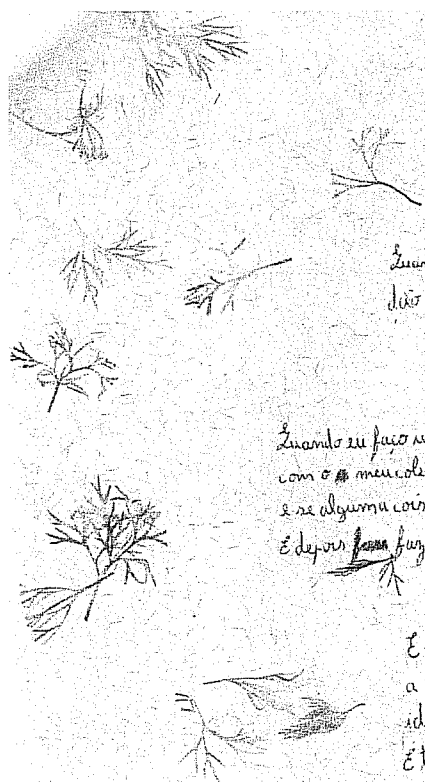 Quan
dição
Quando eu faço u
com o meu cole
e se alguma cois
E depois faz
E
a
id
E t